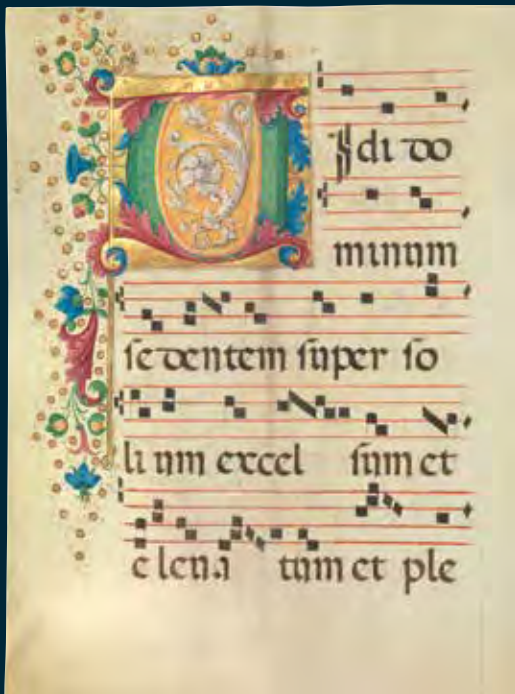 VIdi do
minum
sedentem super so
lium excel sum et
eleua tum et ple